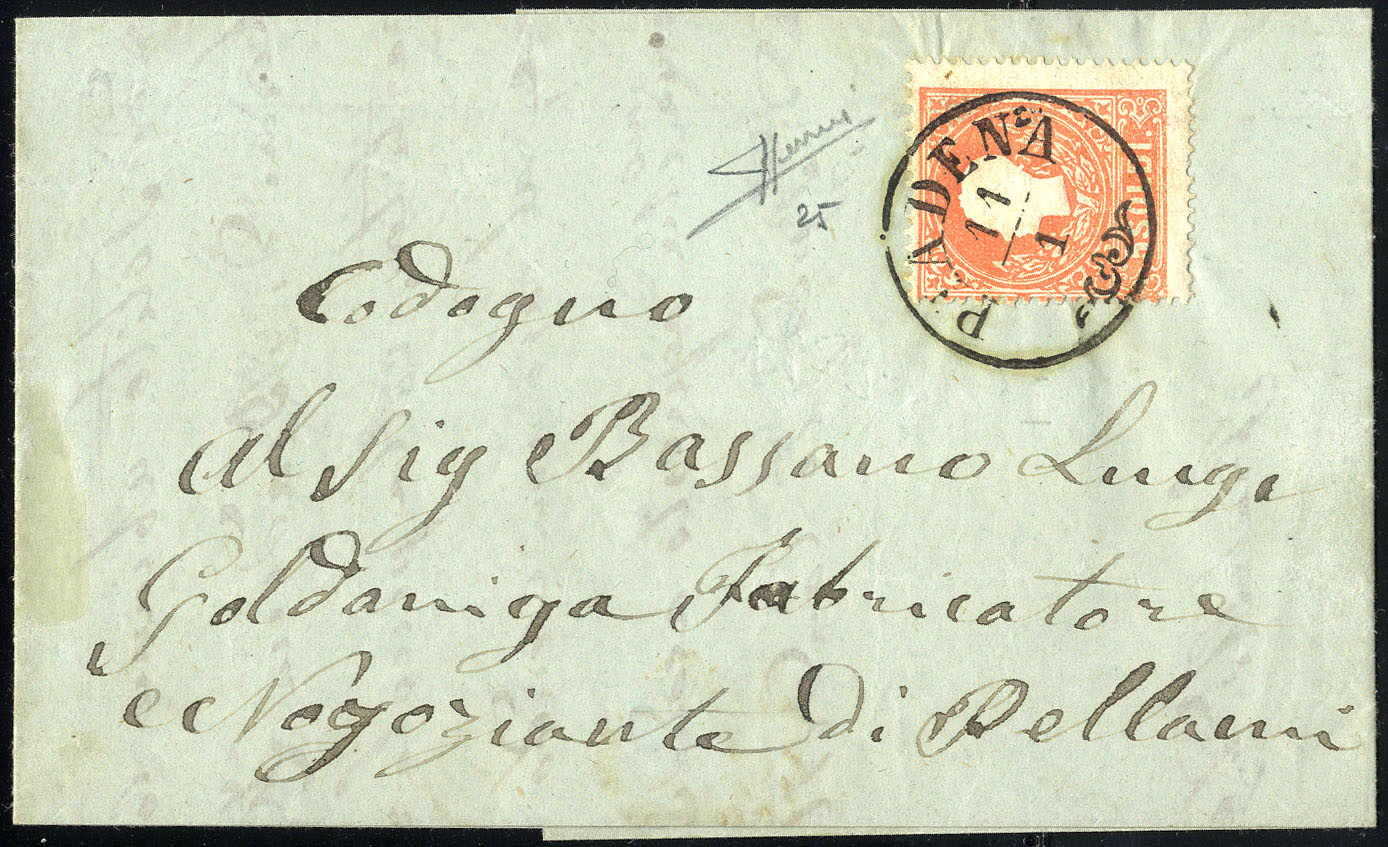 PIADENA
11
1
5 SOLDI
25
Codogno
Al Sig Bassano Luigi
Goldaniga Fabricatore
e Nogoziante di Pellami